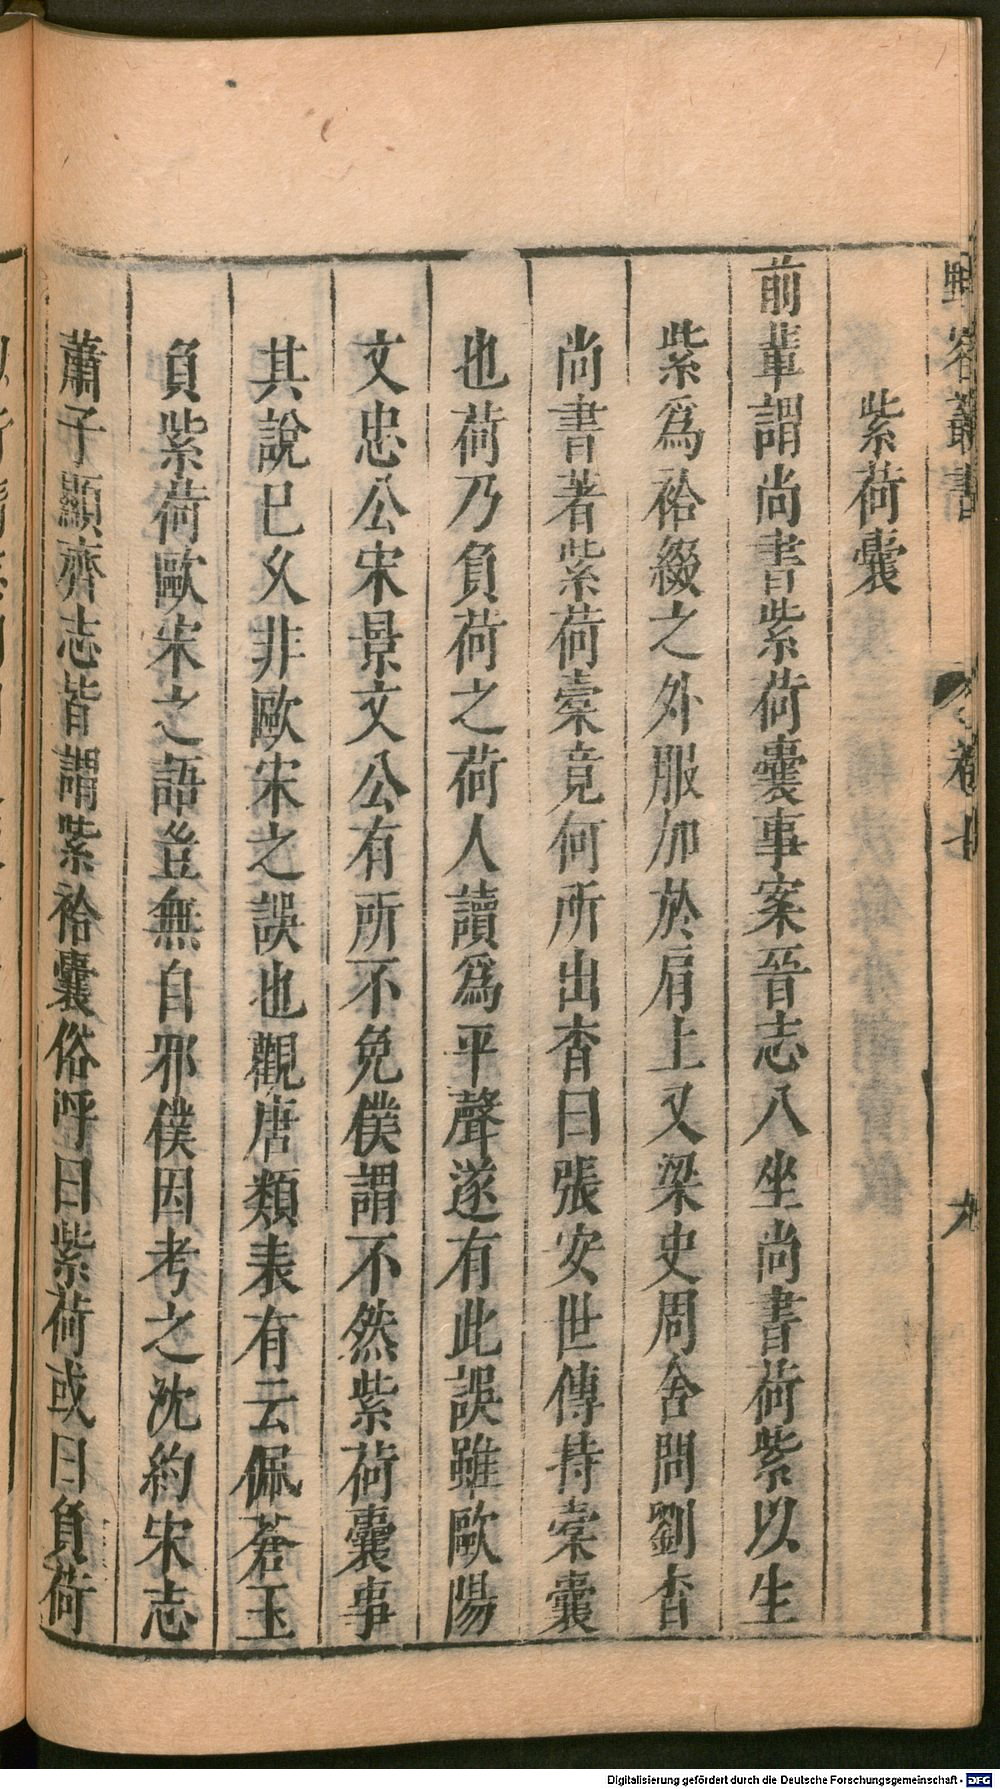 野客叢書
卷七
九
紫荷囊
前輩謂尚書紫荷囊事案晉志八坐尚書荷紫以生
紫爲袷綴之外服加於肩上又梁史周舍問劉杳
尚書著紫荷橐竟何所出杳曰張安世傳持橐囊
也荷乃負荷之荷人讀爲平聲遂有此誤雖歐陽
文忠公宋景文公有所不免僕謂不然紫荷囊事
其說已久非歐宋之誤也觀唐類表有云佩蒼玉
負紫荷歐宋之語豈無自邪僕因考之沈約宋志
蕭子顯齊志皆謂紫袷囊俗呼曰紫荷或曰負荷
Digitalisierung gefördert durch die Deutsche Forschungsgemeinschaft - DFG